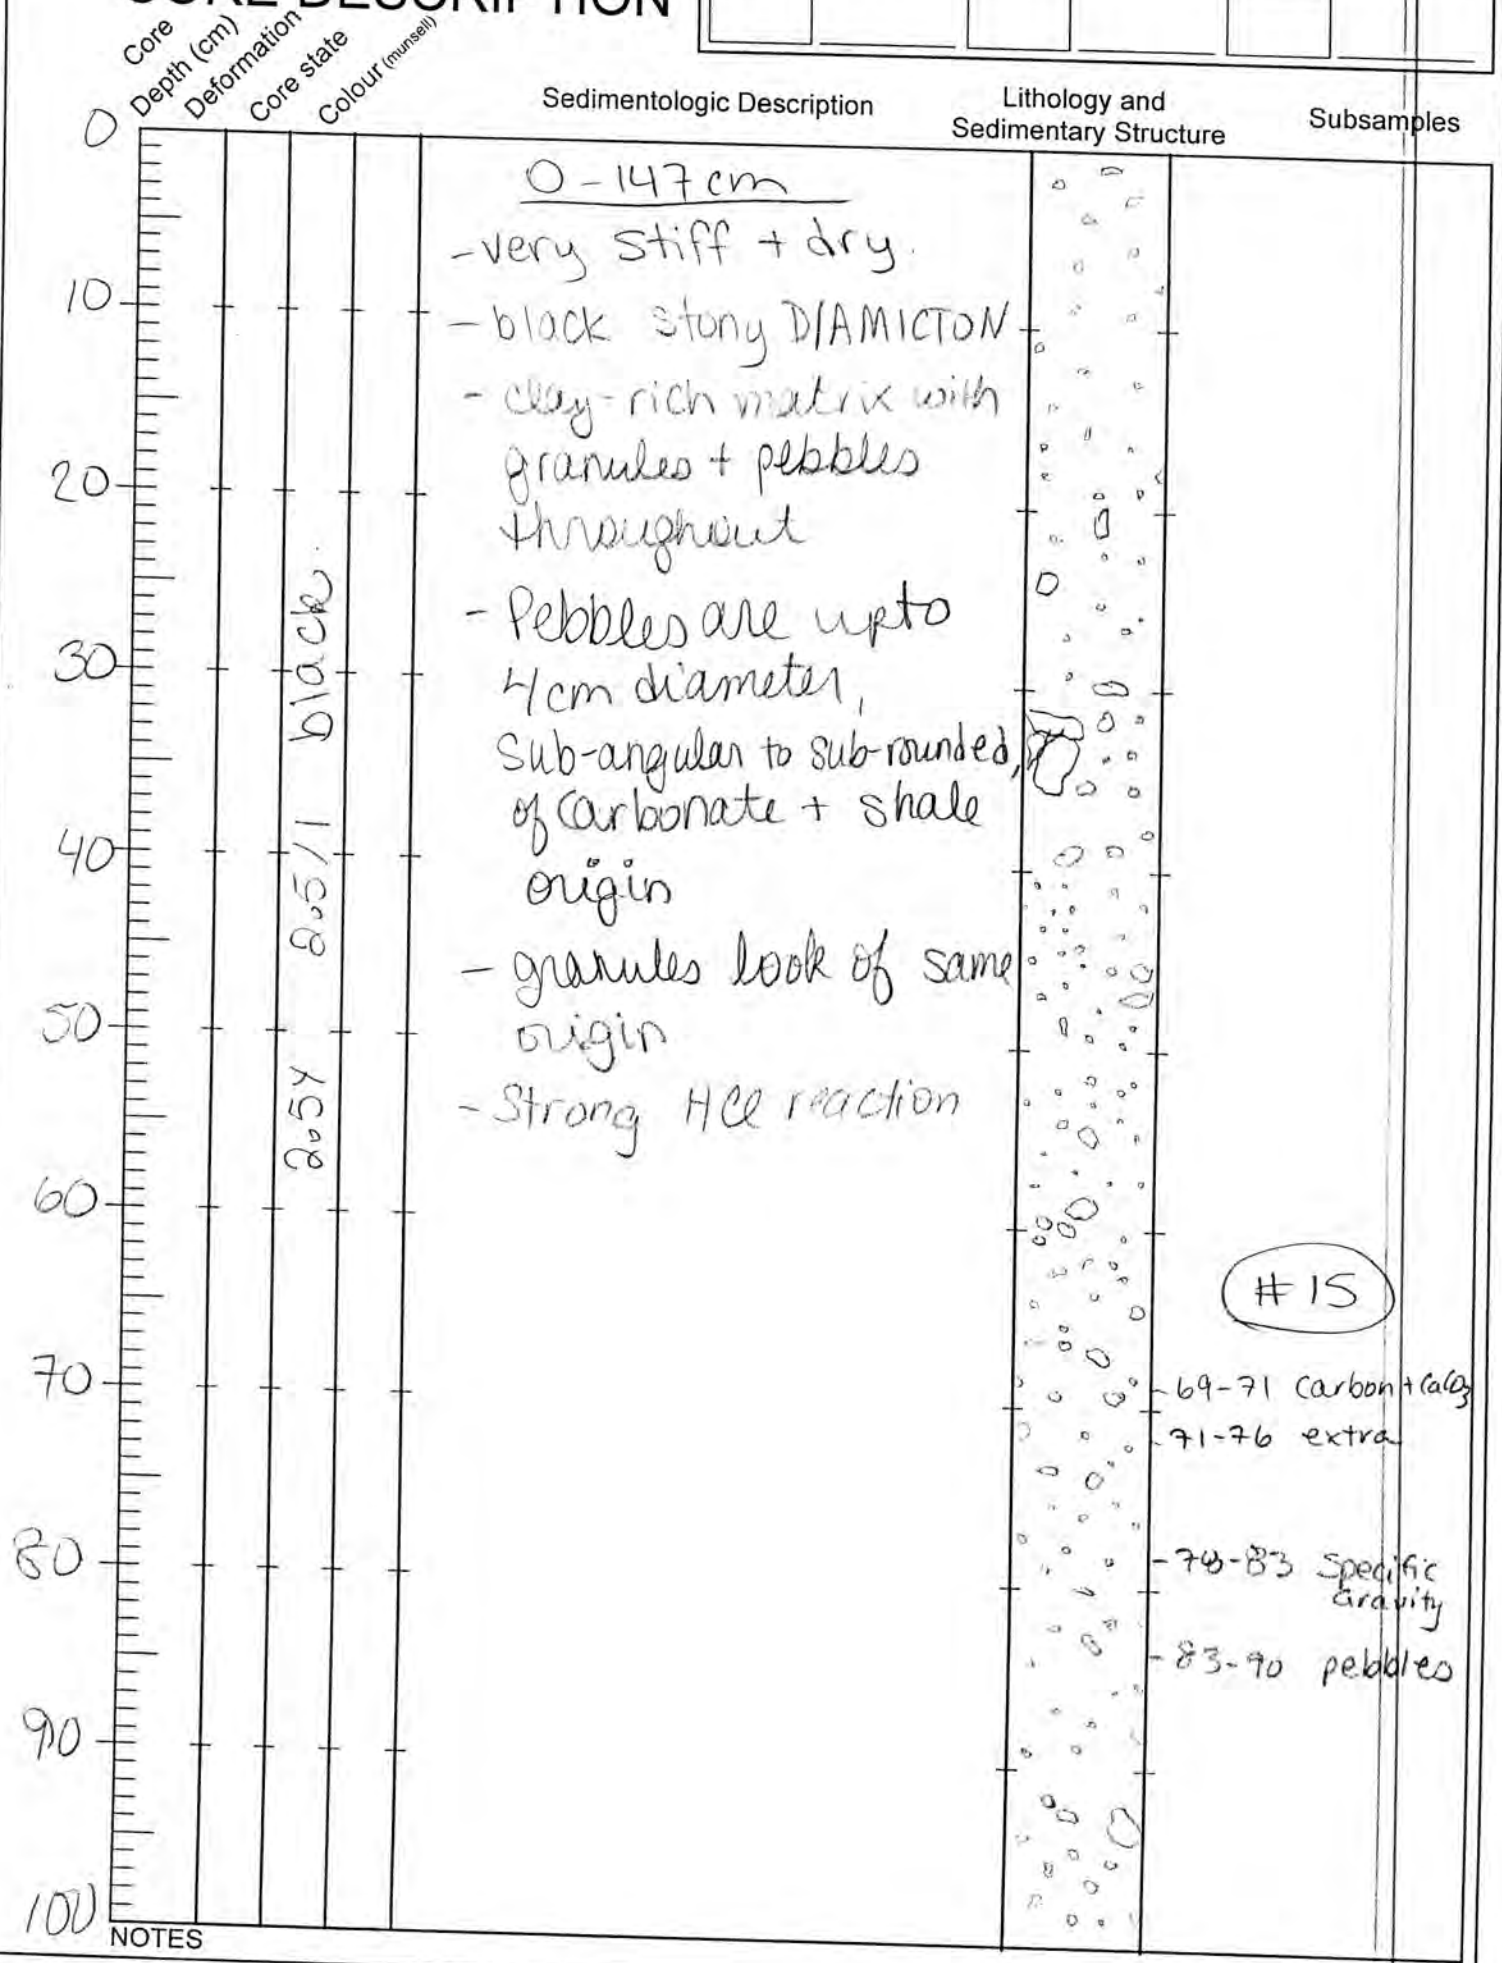 CORE DESCRIPTION
Core
Depth (cm)
Deformation
Core state
Colour (munsell)
Sedimentologic Description
Lithology and
Sedimentary Structure
Subsamples
0
10
20
30
40
50
60
70
80
90
100
2.5Y 2.5/1 black
0-147 cm
- very stiff + dry.
- black stony DIAMICTON
- clay-rich matrix with
granules + pebbles
throughout
- Pebbles are up to
4 cm diameter,
Sub-angular to sub-rounded,
of carbonate + shale
origin
- granules look of same
origin
- Strong HCl reaction
#15
- 69-71 Carbon + CaCO3
- 71-76 extra
- 78-83 Specific
Gravity
- 83-90 pebbles
NOTES